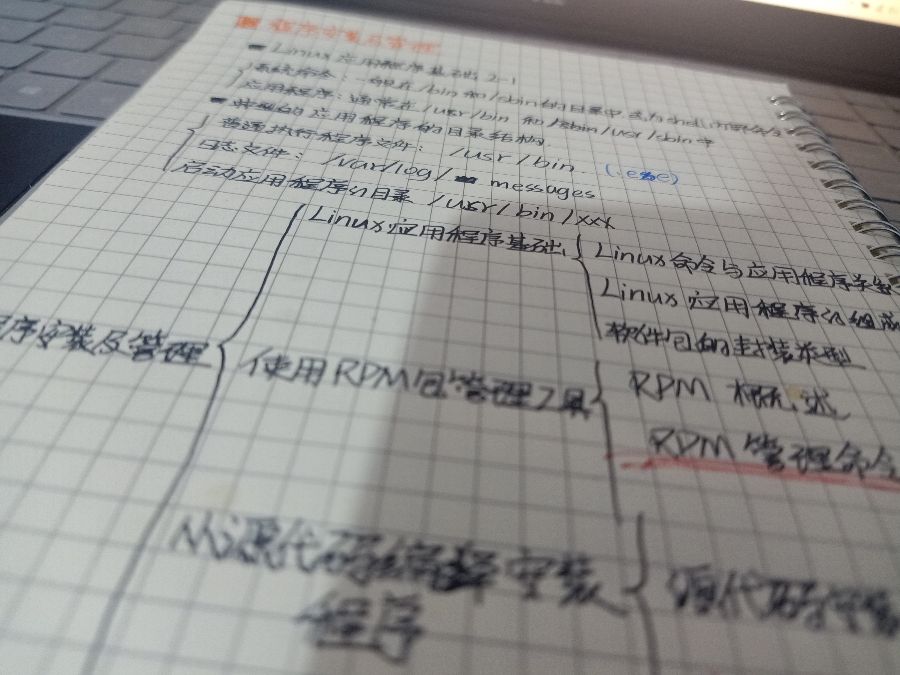 程序安装及管理
Linux 应用程序基础 2-1
系统命令：一般在 /bin 和 /sbin 的目录中
应用程序：通常在 /usr/bin 和 /sbin /usr/sbin 中
典型的应用程序的目录结构
普通执行程序文件： /usr/bin (.exe)
日志文件： /var/log/ messages
启动应用程序 目录 /usr/bin/xxx
Linux 应用程序基础
Linux 命令与应用程序
Linux 应用程序 组成
软件包的封装类型
序安装及管理
使用RPM包管理工具
RPM 概述
RPM 管理命令
源代码编译 安装
程序
源代码